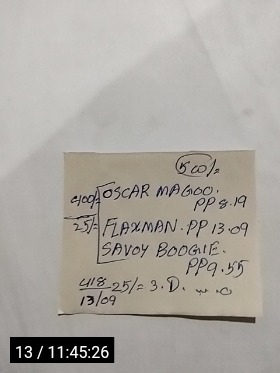 500/=
400/= OSCAR MAGOO.
PP 8.19
25/= FLAXMAN. PP 13.09
SAVOY BOOGIE.
PP9.55
418 25/= 3. D.
13/09
13 / 11:45:26